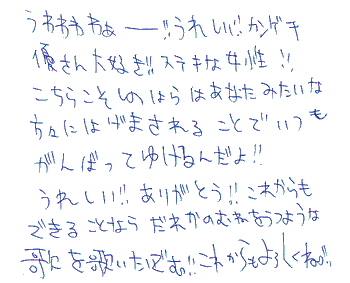 うわぁぁぁぁ――!!うれしい!!カンゲキ
優さん大好き!!ステキな女性!!
こちらこそしのはらはあなたみたいな
方々にはげまされることでいつも
がんばってゆけるんだよ!!
うれしい!!ありがとう!!これからも
できることならだれかのむねをうつような
歌を歌いたいぞぉ!!これからもよろしくねぇ!!